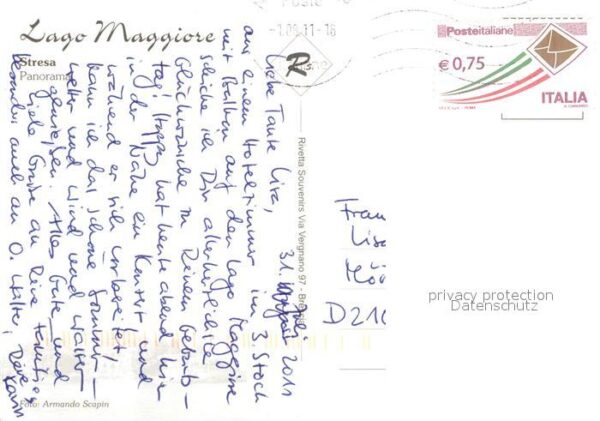 Lago Maggiore
Stresa
Panorama
-1.08.11-16
Posteitaliane
€ 0,75
ITALIA
Rivetta Souvenirs Via Vergnano 97 - Bre
31. Juli 2011
Liebe Tante Lisa,
aus einem Hotelzimmer im 3. Stock
mit Balkon auf den Lago Maggiore
schicke ich Dir allerherzlichste
Glückwünsche zu Deinem Geburts-
tag! Hoppe hat heute abend hier
in der Nähe ein Konzert und
während er sich vorbereitet,
kann ich das schöne Sommer-
wetter und Wind und Wasser
genießen. Alles Gute und
liebe Grüße an Deine Familie,
besonders auch an O. Walter, Deine
Karin
Frau
Lisa
D210
privacy protection
Datenschutz
Foto: Armando Scapin